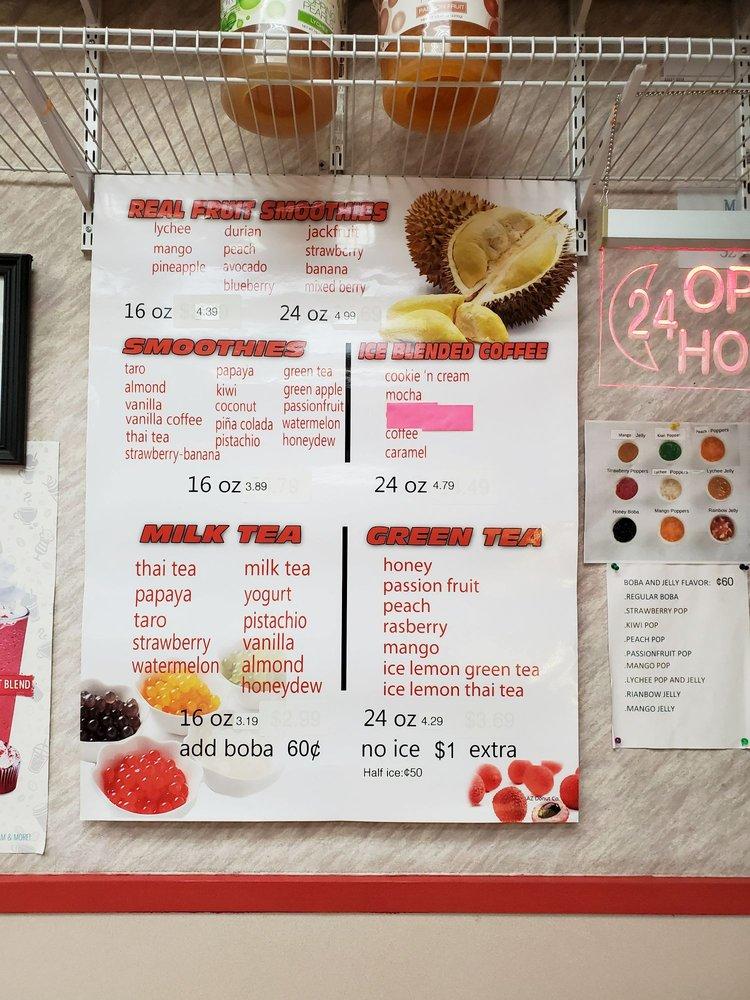 LYCHEE
PASSION FRUIT
REAL FRUIT SMOOTHIES
lychee durian jackfruit
mango peach strawberry
pineapple avocado banana
blueberry mixed berry
16 oz 4.39 24 oz 4.99
SMOOTHIES
taro papaya green tea
almond kiwi green apple
vanilla coconut passionfruit
vanilla coffee piña colada watermelon
thai tea pistachio honeydew
strawberry-banana
ICE BLENDED COFFEE
cookie 'n cream
mocha
coffee
caramel
16 oz 3.89 24 oz 4.79
MILK TEA
thai tea milk tea
papaya yogurt
taro pistachio
strawberry vanilla
watermelon almond
honeydew
GREEN TEA
honey
passion fruit
peach
rasberry
mango
ice lemon green tea
ice lemon thai tea
16 oz 3.19 $2.99 24 oz 4.29 $3.69
add boba 60¢ no ice $1 extra
Half ice:¢50
AZ Donut Co.
24 OP
HO
Mango Jelly Kiwi Popper Peach - Poppers
Strawberry Poppers Lychee Poppers Lychee Jelly
Honey Boba Mango Poppers Rainbow Jelly
BOBA AND JELLY FLAVOR: ¢60
.REGULAR BOBA
.STRAWBERRY POP
.KIWI POP
.PEACH POP
.PASSIONFRUIT POP
.MANGO POP
.LYCHEE POP AND JELLY
.RIANBOW JELLY
.MANGO JELLY
T BLEND
M & MORE!